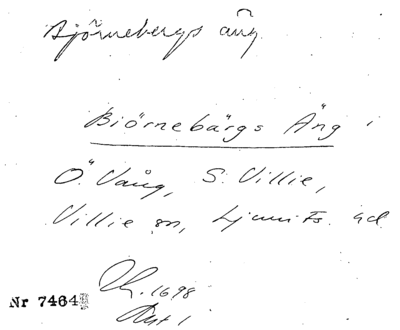 Björnebergs äng
Biörnebärgs Äng
Ö. Vång, S. Villie,
Villie sn, Ljunits hd
1698
Akt 1
Nr 7464